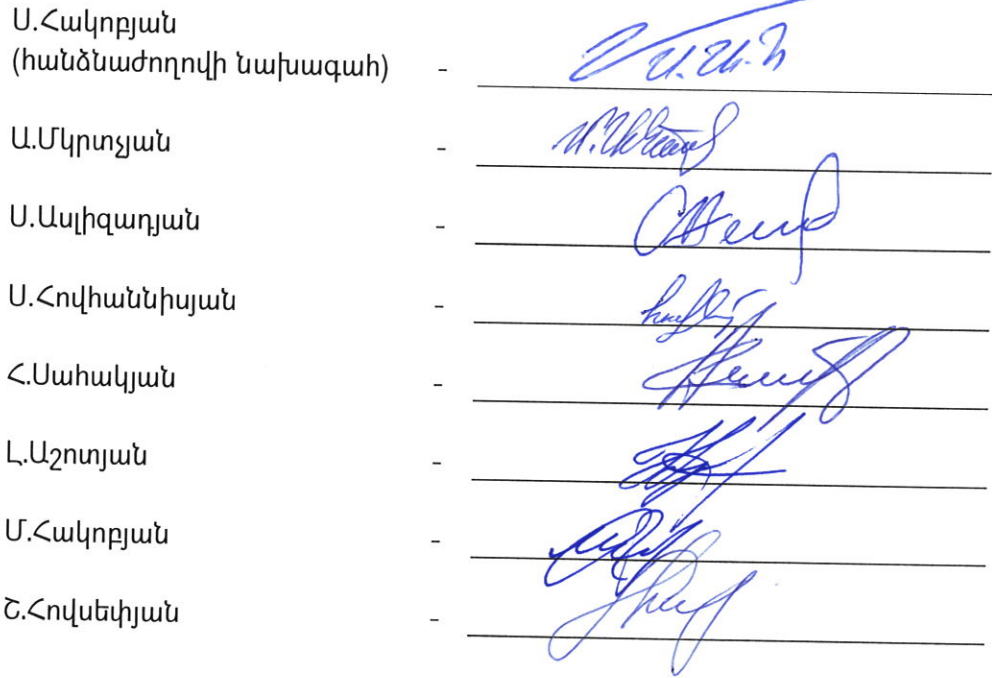 Ս.Հակոբյան
(հանձնաժողովի նախագահ) -
Ա.Մկրտչյան -
Ս.Ասլիզադյան -
Ս.Հովհաննիսյան -
Հ.Սահակյան -
Լ.Աշոտյան -
Մ.Հակոբյան -
Շ.Հովսեփյան -